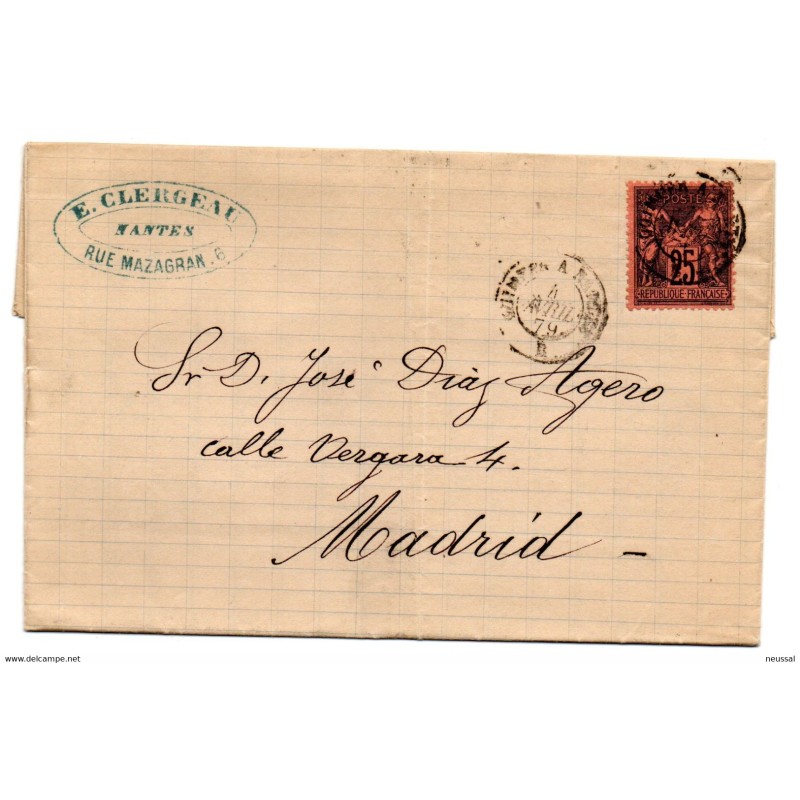 E. CLERGEAU
NANTES
RUE MAZAGRAN. 6
POSTES
25
REPUBLIQUE FRANÇAISE
QUIMPER A NANTES
4
AVRIL
79
Sr D. José Diaz Agero
calle Vergara 4.
Madrid –
www.delcampe.net
neussal